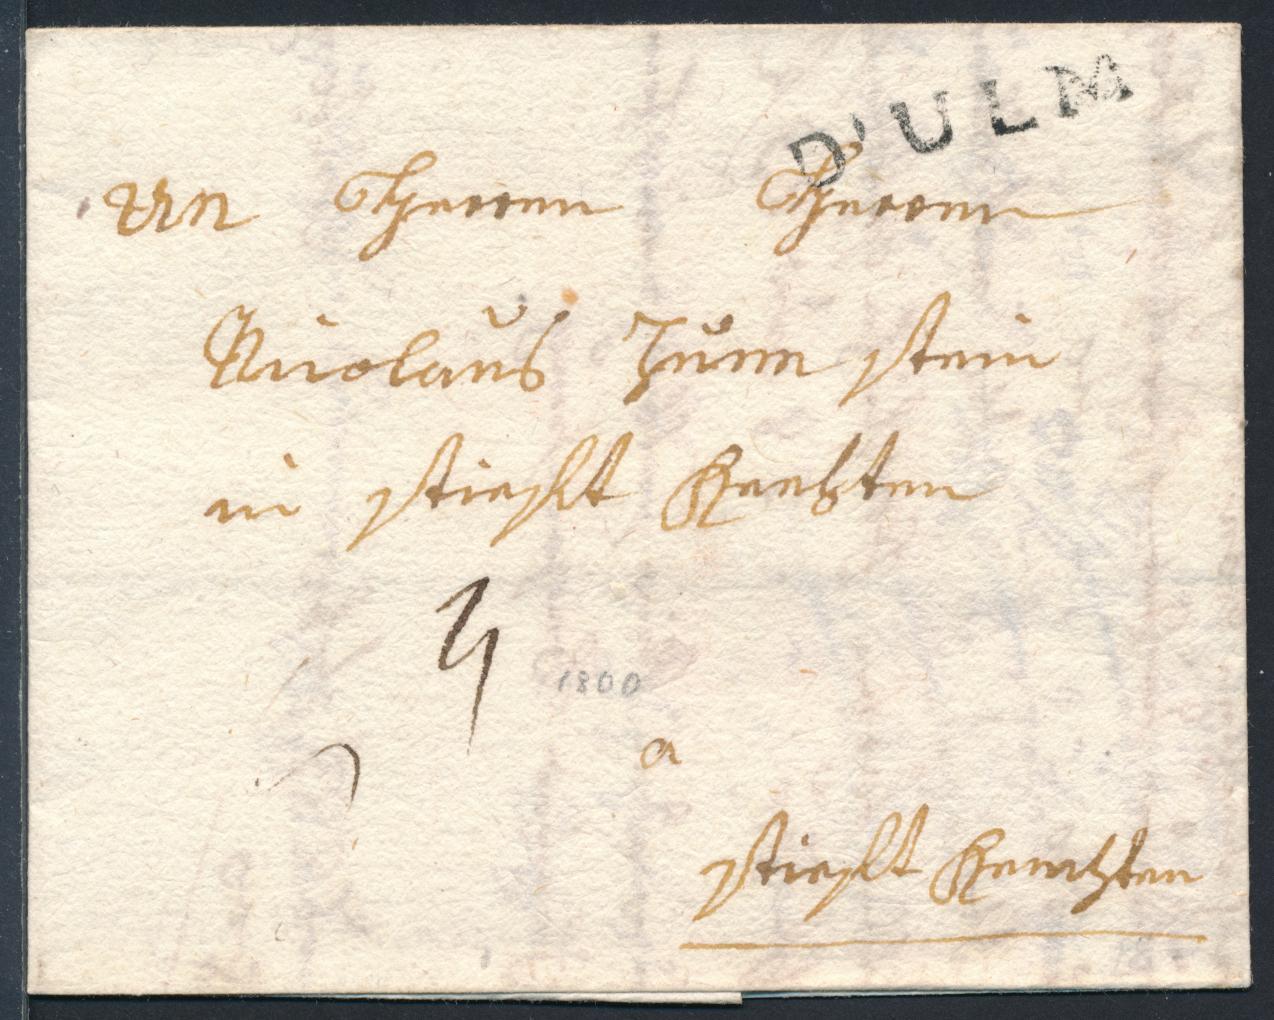 D'ULM
An Herren Herren
Nicolaus Zum stein
in stifft Kembten
4
1800
a
stifft Kembten